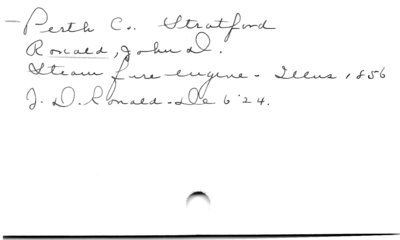 - Perth Co. Stratford
Ronald, John D.
Steam fire engine - Illus, 1856
J. D. Ronald - De 6 '24.